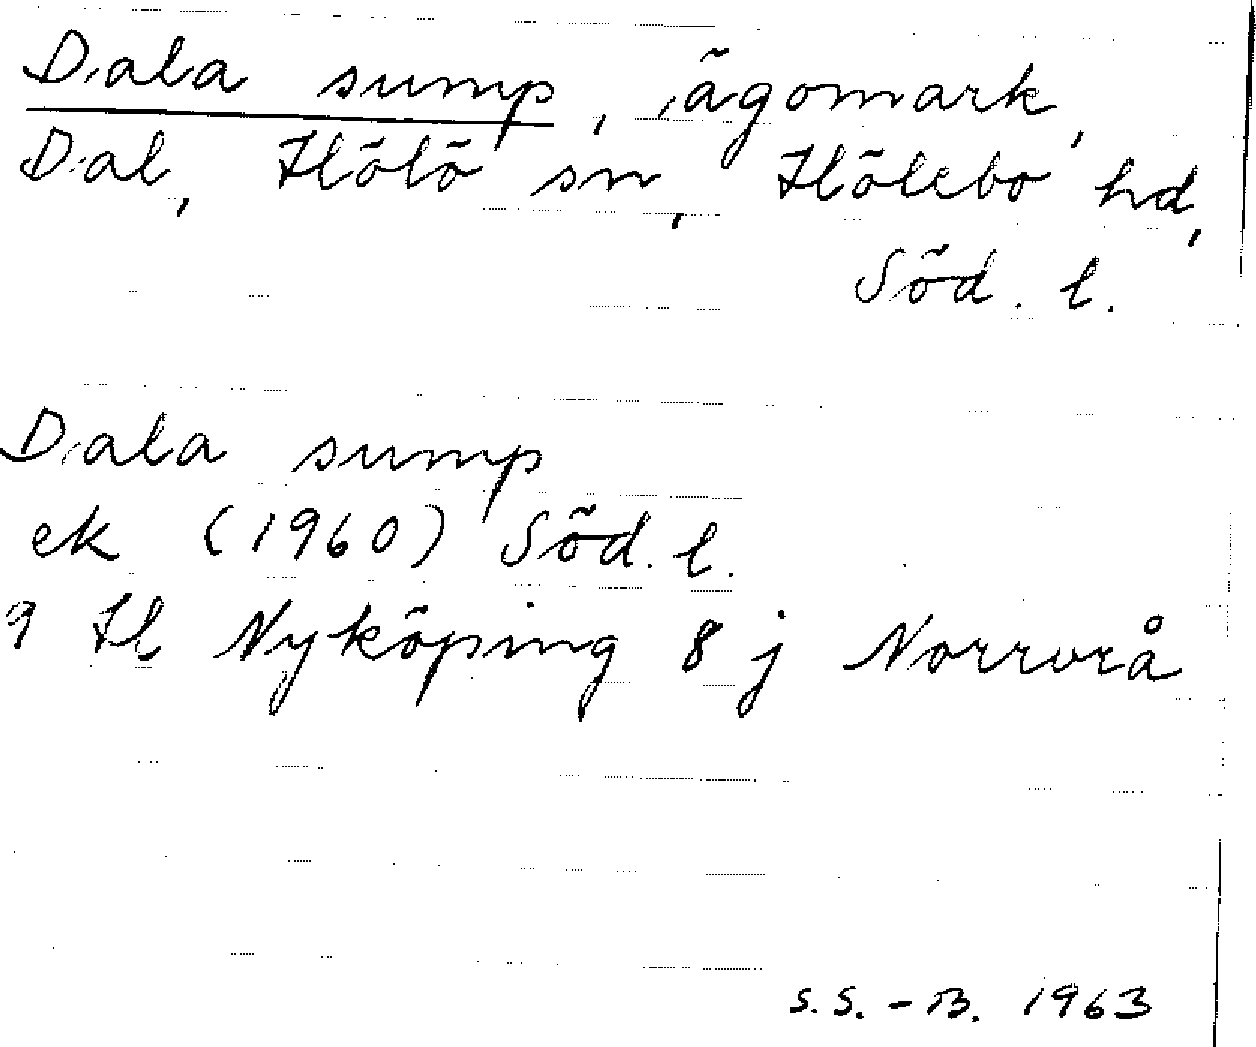 Dala sump, ägomark,
Dal, Hölö sn, Hölebo hd,
Söd. l.
Dala sump
ek (1960) Söd. l.
9 H Nyköping 8 j Norrvrå
S.S.-B. 1963